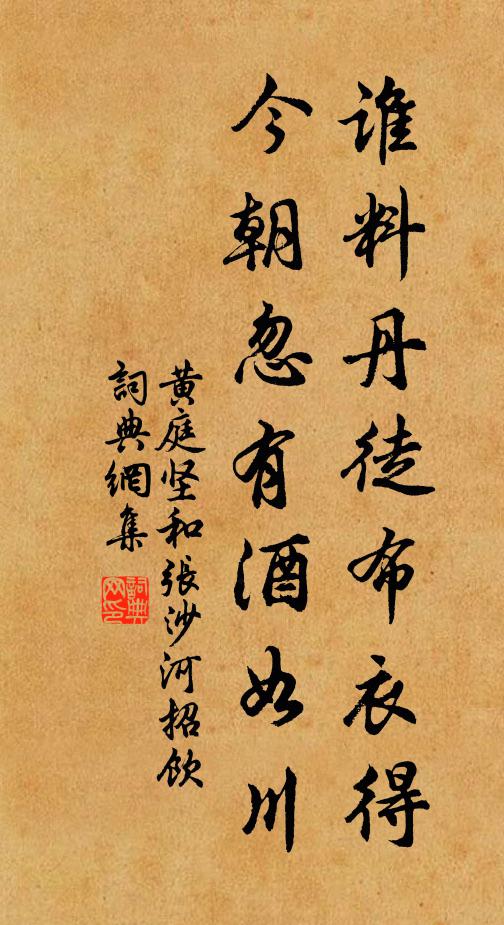 誰料丹徒布衣得
今朝忽有酒如川
黄庭坚和張沙河招飲
詞典網集
詞典
网印